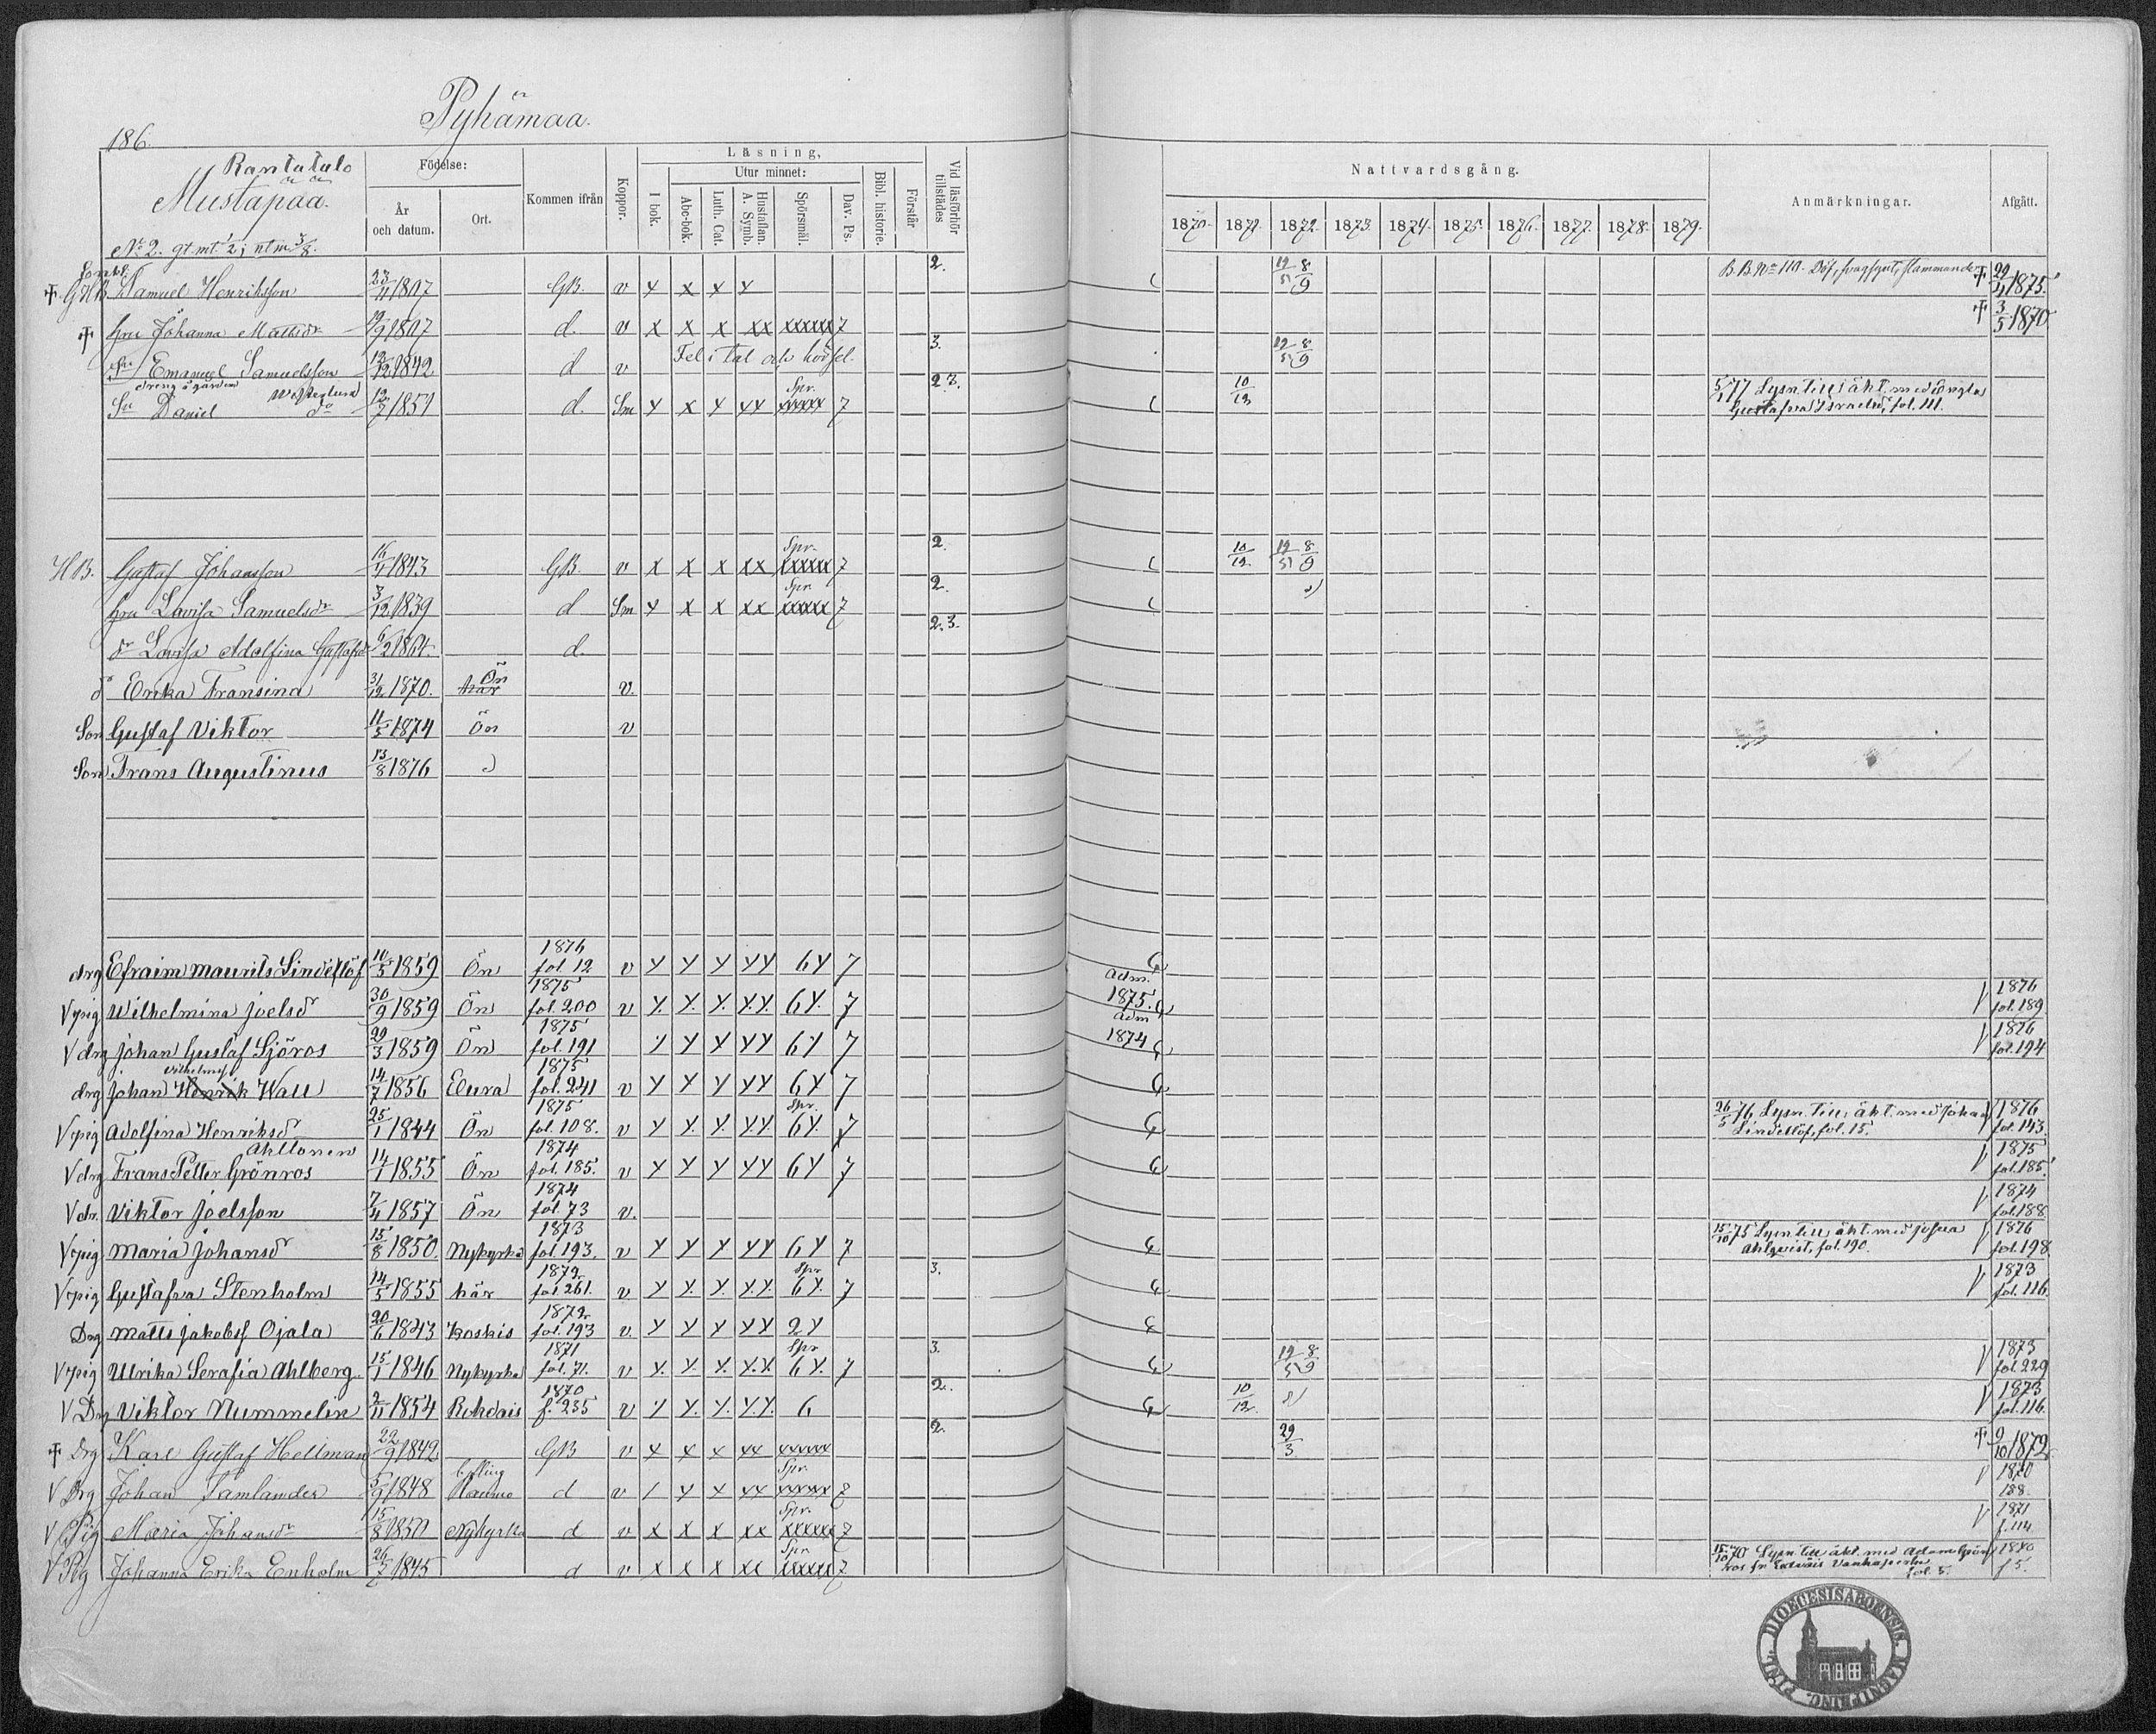 Pyhämaa.
186.
Rantatalo
Mustapää.
No 2. gt mt 1/2; nt m 3/8.
Födelse:
År och datum.
Ort.
Kommen ifrån
Koppor.
Läsning,
I bok.
Utur minnet:
Abc-bok.
Luth. Cat.
Hustaflan. A. Symb.
Spörsmål.
Dav. Ps.
Bibl. historie.
Förstår
Vid läsförhör tillstädes
Nattvardsgång.
1870. 1871. 1872. 1873. 1874. 1875. 1876. 1877. 1878. 1879.
Anmärkningar.
Afgått.
GHB. Samuel Henriksson 23/11 1807 GB. v x x x x 2. 19/5 8/9 B.B. No 110. Döf, svagsynt, stammande 29/4 1875.
hru Johanna Mattsdr 19/9 1807 d. v x x x xx xxxxxx 7 3/5 1870.
Sn Emanuel Samuelsson 12/12 1842 d v Fel i tal och hörsel. 3. 19/5 8/9
dreng å gården Westerlund
Sn Daniel do 12/7 1851 d. Sm x x x xx Spr. xxxxx 7 2 3. 10/12 5/1 77 Lysn. till äkt. med
Gustafva Israelsd, fol. 111.
HB. Gustaf Johansson 16/4 1843 GB. v x x x xx Spr. xxxxxx 7 2. 10/12 19/5 8/9
hru Lovisa Samuelsdr 3/12 1839 d Sm x x x xx Spr xxxxxx 7 2.
dr Lovisa Adolfina Gustafsdr 6/2 1864. d. 2. 3.
dr Erika Fransina 31/12 1870. här Ön v.
Son Gustaf Viktor 11/5 1874 Ön v
Son Frans Augustinus 13/8 1876
drg Efraim Maurits Lindellöf 10/5 1859 Ön 1876 fol. 12 v x x x xx 6x 7
V pig Wilhelmina Joelsd 30/9 1859 Ön 1875 fol. 200 v x. x. x. x.x. 6x. 7 Adm. 1875. V 1876 fol. 189
V drg Johan Gustaf Sjöros 29/3 1859 Ön 1875 fol. 191 x x x xx 6x 7 Adm 1874 V 1876 fol. 194
drg Johan Vilhelms Henrik Wall 14/7 1856 Eura 1875 fol. 241 v x x x xx 6x 7
V pig Adolfina Henriksd 25/1 1844 Ön 1875 fol. 108. v x x. x. x.x. Spr. 6x. 7 26/5 76 Lysn. till äkt. med Johan V 1876
Lindellöf, fol. 15. fol. 143.
Ahllonen
V drg Frans Petter Grönros 14/1 1855 Ön 1874 fol. 185. v x x x xx 6x 7 V 1875 fol. 185
V dr. Viktor Joelsson 7/4 1857 Ön 1874 fol. 73 v. V 1874 fol. 188
V pig Maria Johansd 15/8 1850. Nykyrka 1873 fol. 193. v x x x xx 6x 7 15/10 75 Lysn. till äkt. med Josua V 1876
Ahlqvist, fol. 190. fol. 198
V pig Gustafva Stenholm 14/5 1855 här 1872. fol 261. v x x. x. x.x. Spr 6x. 7 3. V 1873 fol. 116.
Drg Matts Jakobsf Ojala 20/6 1843 Koskis 1872. fol. 193 v. x x x xx 2x
V pig Ulrika Serafia Ahlberg. 15/1 1846 Nykyrka 1871 fol. 71. v x. x. x. x.x. Spr 6x. 7 3. 19/5 8/9 V 1873 fol. 229
V Drg Viktor Nummelin 2/11 1854 Rohdais 1870 f. 235 v x x. x. x.x. 6 2. 10/12 V 1873 fol. 116.
Drg Karl Gustaf Hellman 22/9 1842 GB v x x x xx xxxxxx 2. 29/3 9/10 1872
V Drg Johan Tamlander 5/9 1848 Raumo d v / x x xx Spr. xxxxx 7 V 1870 188.
V Pig Maria Johansdr 15/8 1850 Nykyrka d v x x x xx Spr. xxxxxx 7 V 1871 f. 114
V Pig Johanna Erika Enholm 26/7 1845 d v x x x xx Spr xxxxxx 7 15/10 70 Lysn till äkt. med Adam Grön 1870
ros fr Vanhapertu fol. 5. f 5.
DIOECESIS ABOENSIS.